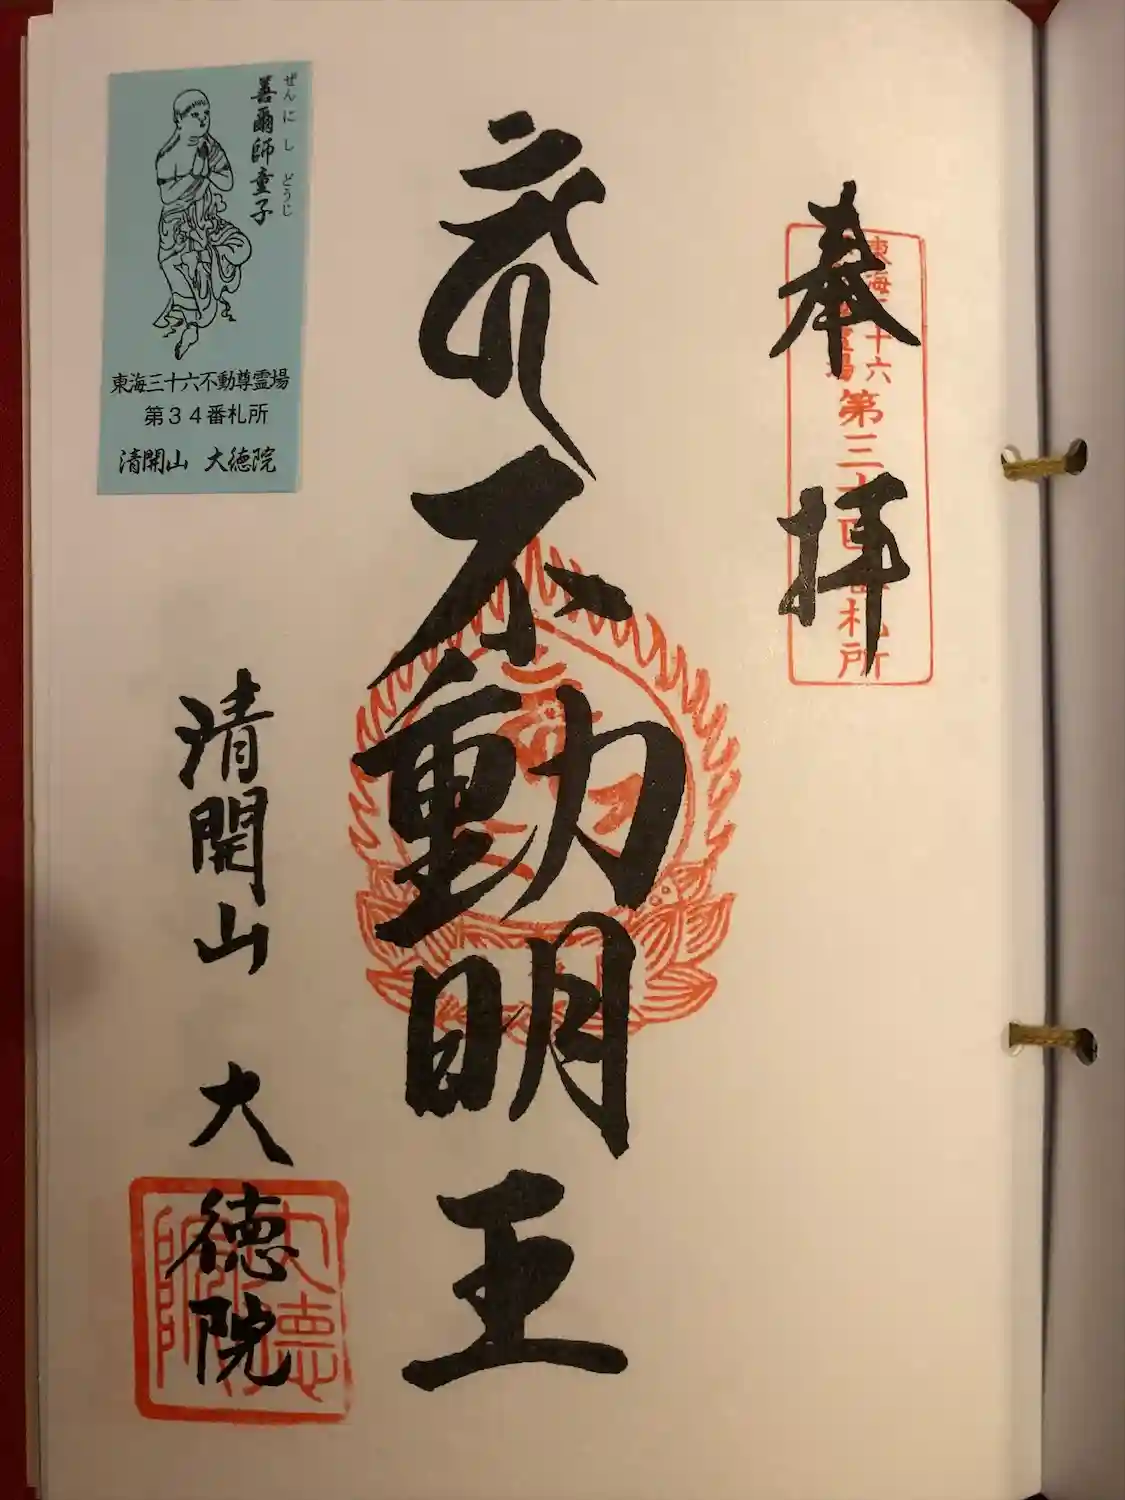 奉拝
東海三十六
第三十四番札所
不動明王
清開山 大徳院
大徳院
ぜんにし どうじ
善爾師童子
東海三十六不動尊霊場
第34番札所
清開山 大徳院